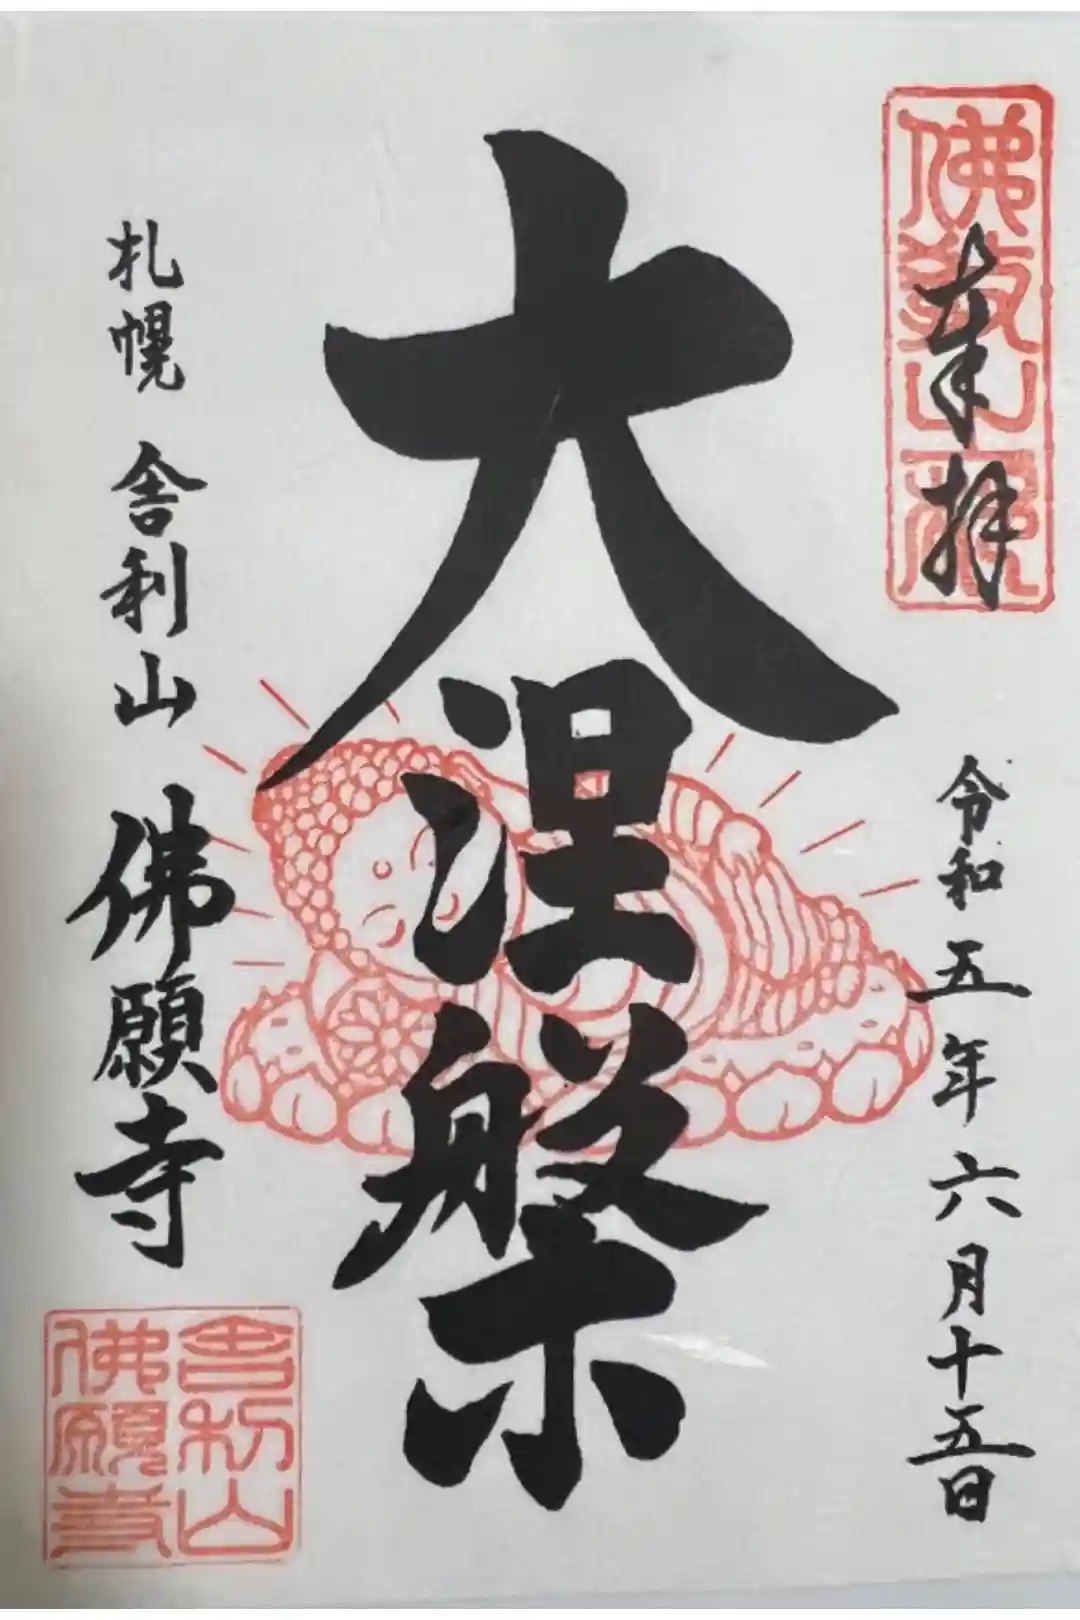 奉拝
令和五年六月十五日
大涅槃
札幌 舎利山 佛願寺
舎利山
佛願寺